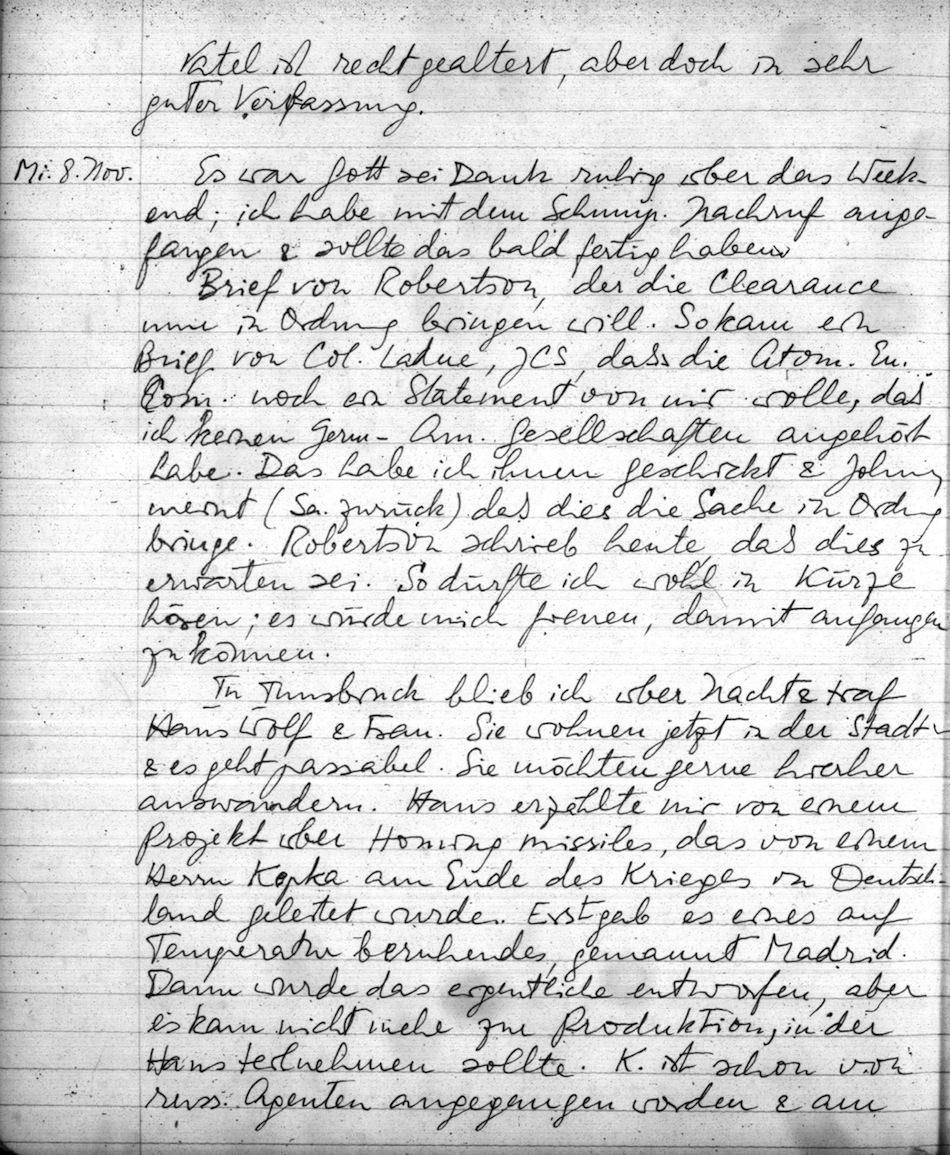 Vatel ist recht gealtert, aber doch in sehr
guter Verfassung.
Mi. 8. Nov. Es war Gott sei Dank ruhig über das Week-
end; ich habe mit dem Schump. Nachruf ange-
fangen & sollte das bald fertig haben.
Brief von Robertson, der die Clearance
nun in Ordnung bringen will. So kam ein
Brief von Col. Ladue, JCS, dass die Atom. En.
Com. noch ein Statement von mir wolle, daß
ich keinen Germ-Am. Gesellschaften angehört
habe. Das habe ich ihnen geschickt & Johnny
meint (Sa. zurück) daß dies die Sache in Ordng
bringe. Robertson schrieb heute, daß dies zu
erwarten sei. So dürfte ich wohl in Kürze
hören; es würde mich freuen, damit anfangen
zu können.
In Innsbruck blieb ich über Nacht & traf
Hans Wolf & Frau. Sie wohnen jetzt in der Stadt
& es geht passabel. Sie möchten gerne hierher
auswandern. Hans erzählte mir von einem
Projekt über Homing missiles, das von einem
Herrn Kopka am Ende des Krieges in Deutsch-
land geleitet wurde. Erst gab es eines auf
Temperatur beruhendes, genannt Madrid.
Dann wurde das eigentliche entworfen, aber
es kam nicht mehr zur Produktion, in der
Hans teilnehmen sollte. K. ist schon von
russ. Agenten angegangen worden & am